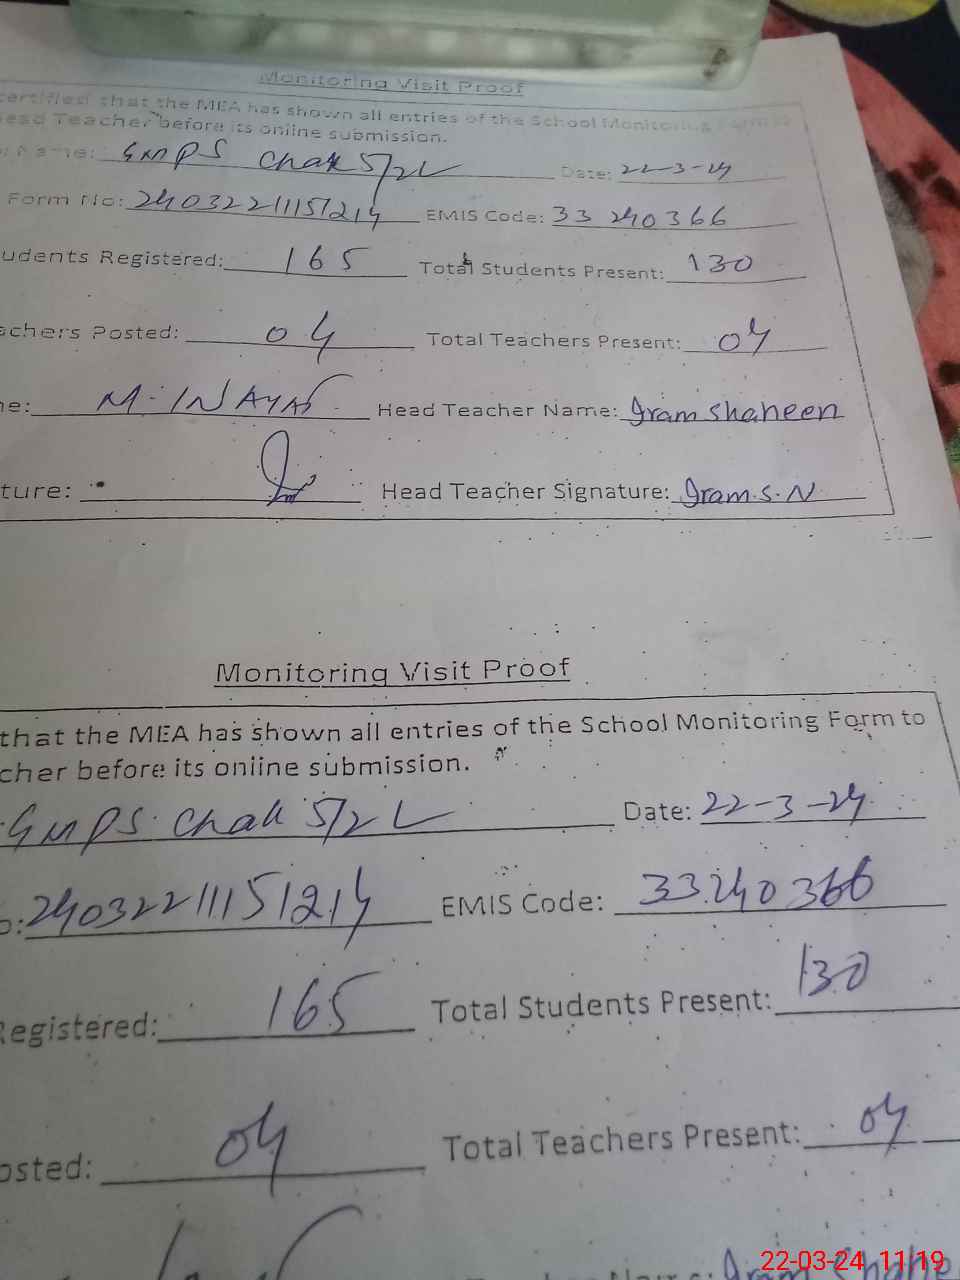 Monitoring Visit Proof
certified that the MEA has shown all entries of the School Monitoring Form to
Head Teacher before its online submission.
Name: GMPS Chak 5/2L Date: 22-3-24
Form No: 24032211151214 EMIS Code: 33240366
udents Registered: 165 Total Students Present: 130
achers Posted: 04 Total Teachers Present: 04
me: M. INAYAT Head Teacher Name: Iram Shaheen
ture: Head Teacher Signature: Iram.S.N
Monitoring Visit Proof
that the MEA has shown all entries of the School Monitoring Form to
cher before its online submission.
GMPS Chak 5/2L Date: 22-3-24
o: 24032211151214 EMIS Code: 33240366
Registered: 165 Total Students Present: 130
osted: 04 Total Teachers Present: 04
Iram Shahe
22-03-24 11:19